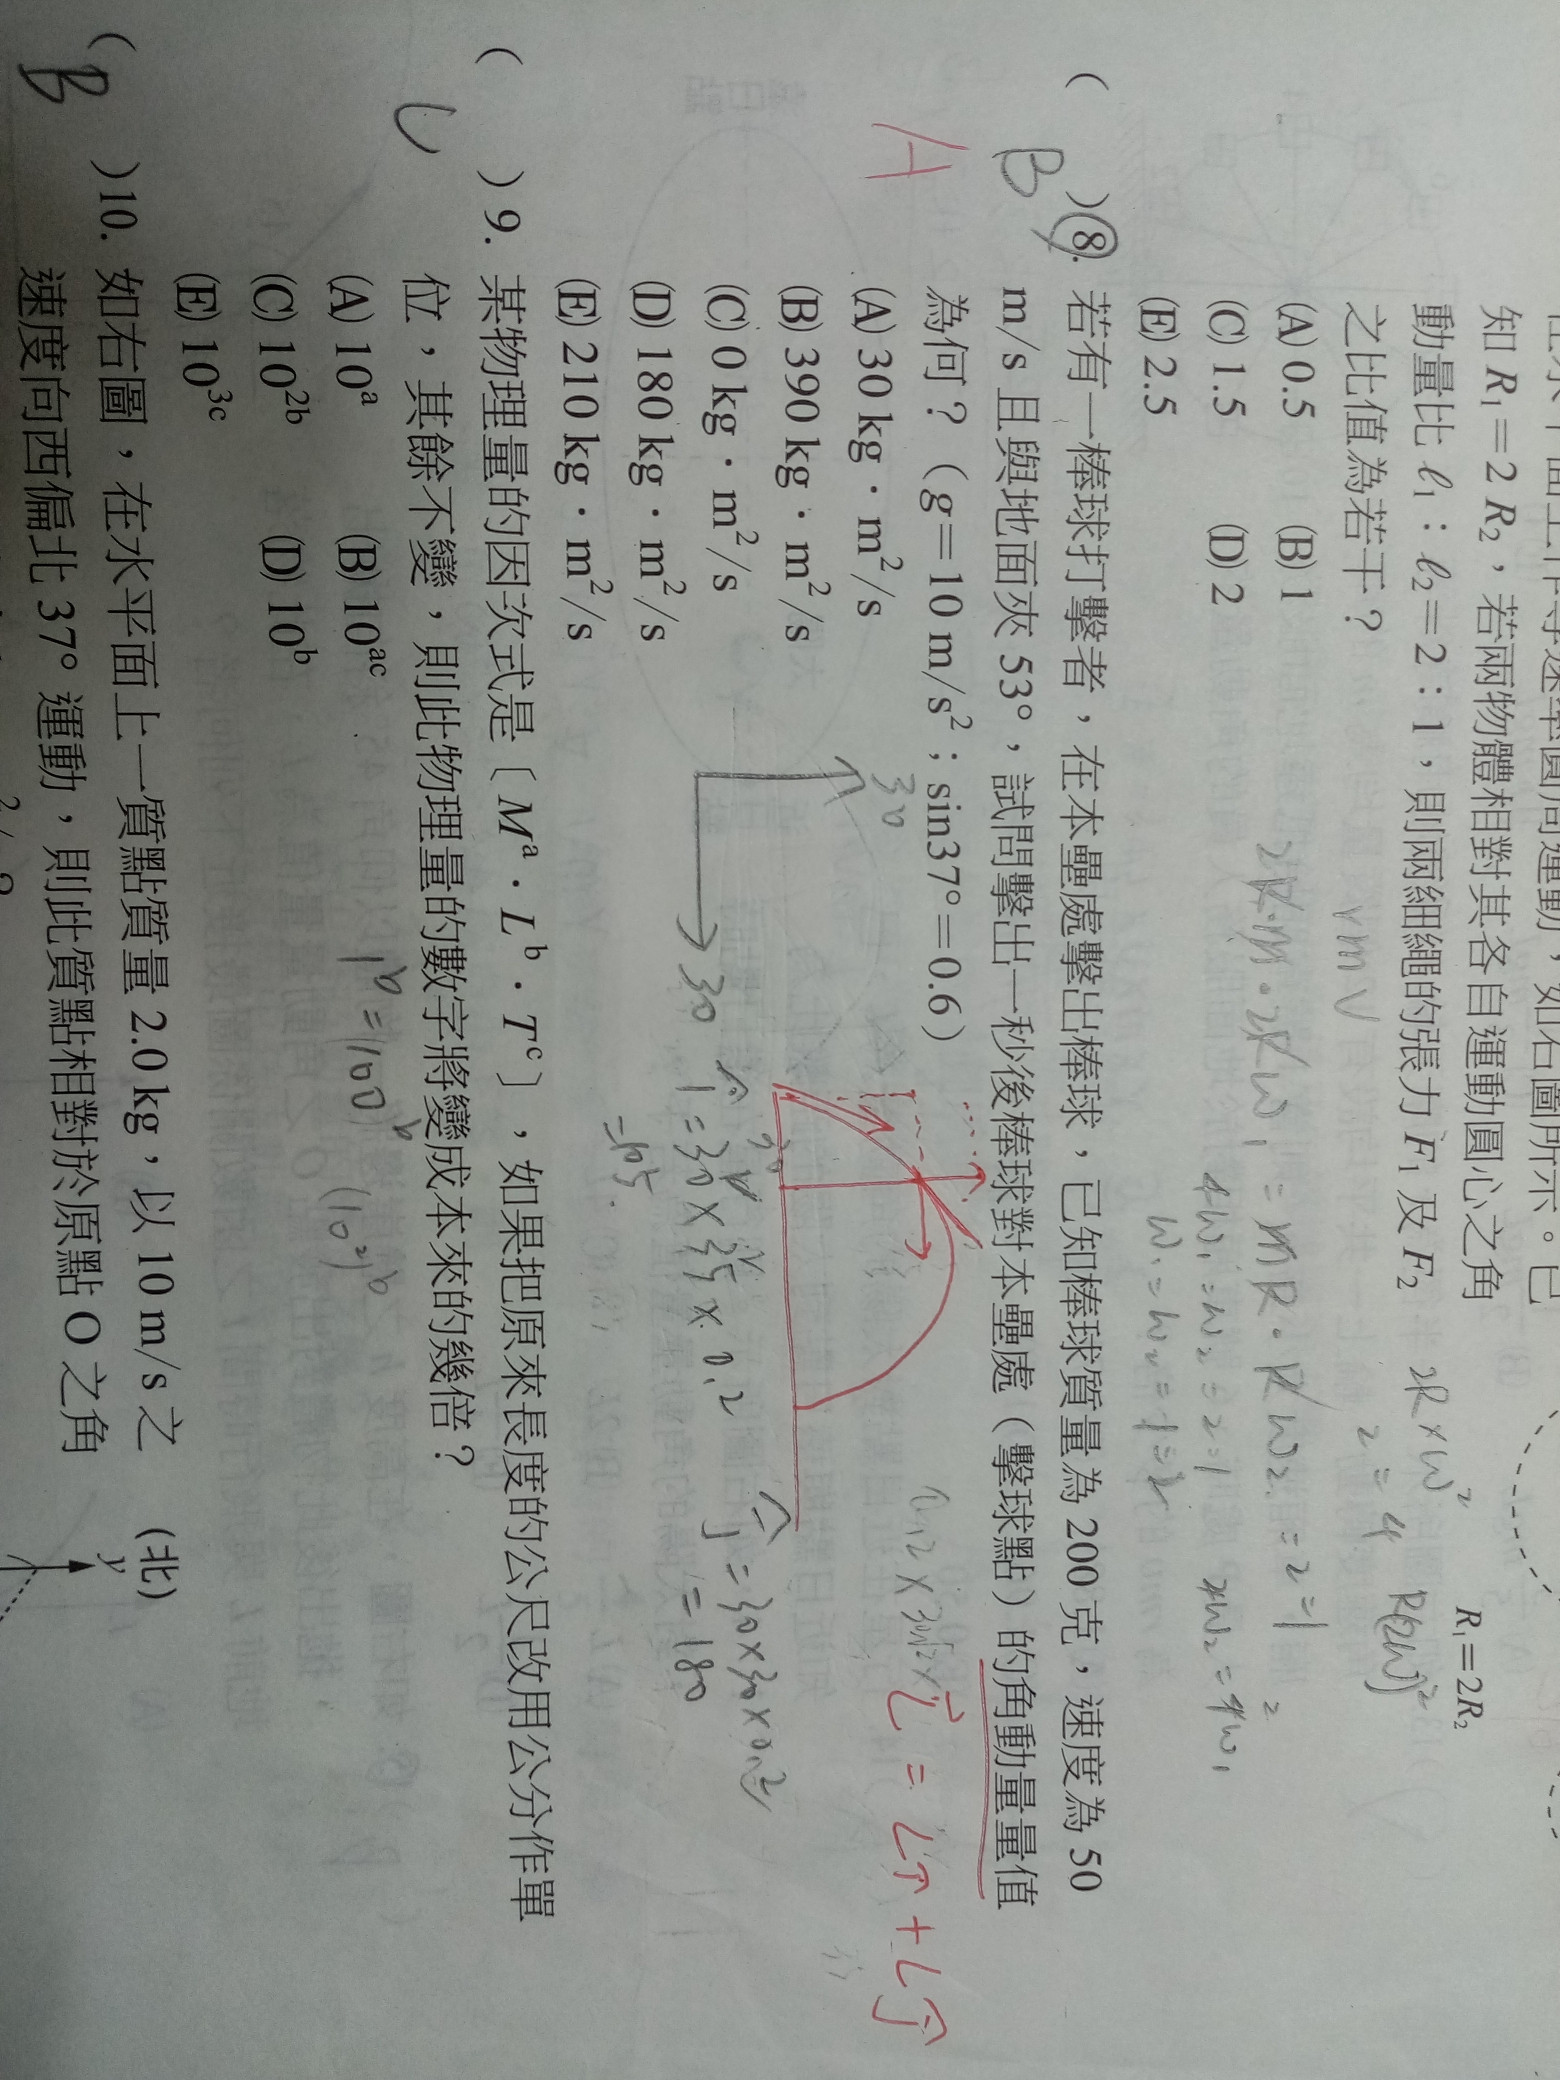 知 R₁＝2 R₂，若兩物體相對其各自運動圓心之角
動量比 ℓ₁：ℓ₂＝2：1，則兩細繩的張力 F₁ 及 F₂
之比值為若干？
(A) 0.5 (B) 1
(C) 1.5 (D) 2
(E) 2.5
R₁＝2R₂
2R×W²
R(2W)²
2 = 4
rmV
2R·m·2RW₁ = mR·RW₂ = 2=1
4W₁=W₂=2=1
W₁=W₂=1=2
( B )8. 若有一棒球打擊者，在本壘處擊出棒球，已知棒球質量為 200 克，速度為 50
A
m/s 且與地面夾 53°，試問擊出一秒後棒球對本壘處（擊球點）的角動量量值
為何？（g＝10 m/s²；sin37°＝0.6）
(A) 30 kg．m²/s
(B) 390 kg．m²/s
(C) 0 kg．m²/s
(D) 180 kg．m²/s
(E) 210 kg．m²/s
30
30
30
= 30×35×0.2
= 30×30×0.2
= 180
( C )9. 某物理量的因次式是〔Mᵃ．Lᵇ．Tᶜ〕，如果把原來長度的公尺改用公分作單
位，其餘不變，則此物理量的數字將變成本來的幾倍？
(A) 10ᵃ (B) 10ᵃᶜ
(C) 10²ᵇ (D) 10ᵇ
(E) 10³ᶜ
1ᵇ=(100)ᵇ
(10²)ᵇ
( B )10. 如右圖，在水平面上一質點質量 2.0 kg，以 10 m/s 之
速度向西偏北 37° 運動，則此質點相對於原點 O 之角
(北)
y